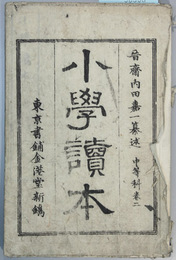 音齋内田嘉一纂述 中等科卷二
小學讀本
東京書鋪金港堂新鐫